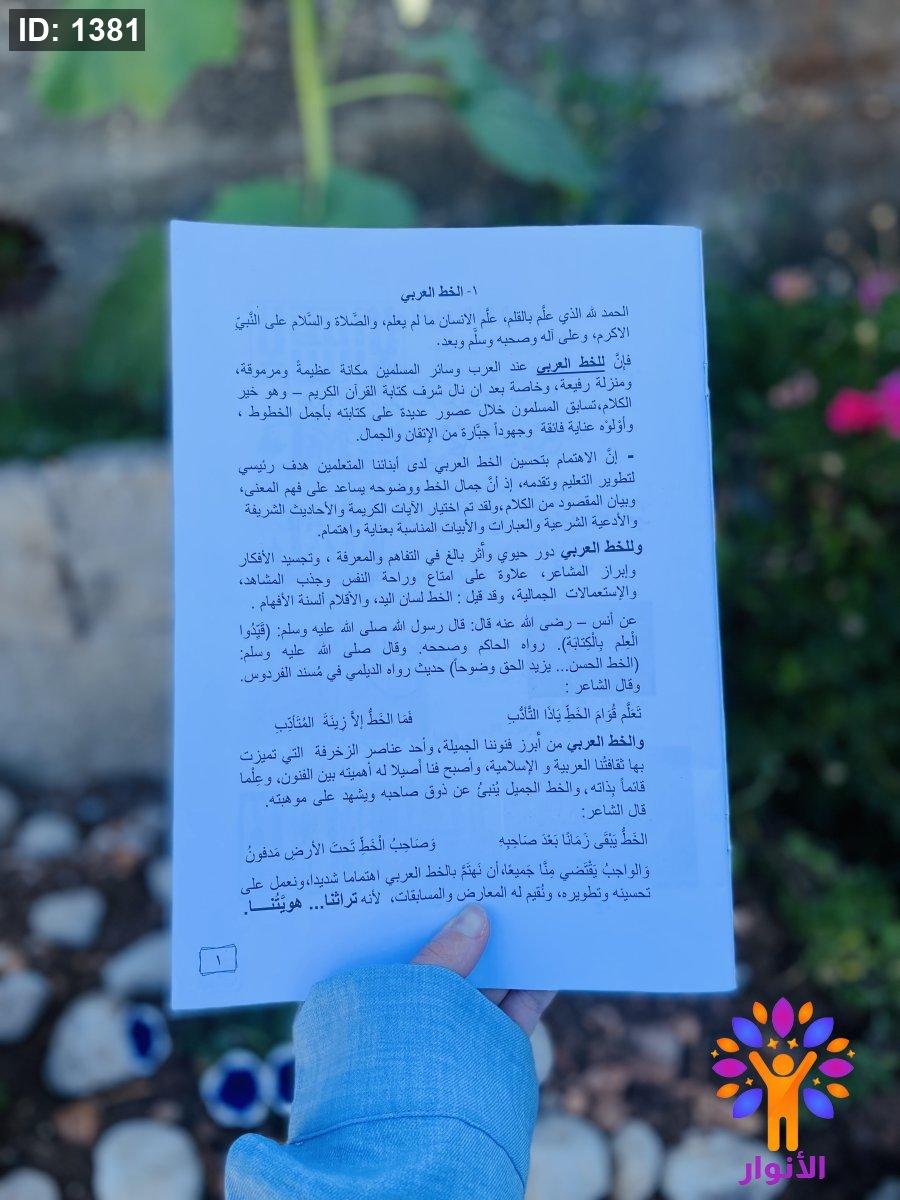 ID: 1381
١- الخط العربي
الحمد لله الذي علَّم بالقلم، علَّم الانسان ما لم يعلم، والصَّلاة والسَّلام على النَّبيّ
الاكرم، وعلى آله وصحبه وسلَّم وبعد.
فإنَّ للخط العربي عند العرب وسائر المسلمين مكانة عظيمةً ومرموقة،
ومنزلة رفيعة، وخاصة بعد ان نال شرف كتابة القرآن الكريم – وهو خير
الكلام،تسابق المسلمون خلال عصور عديدة على كتابته بأجمل الخطوط ،
وأوْلوْه عناية فائقة وجهوداً جبَّارة من الإتقان والجمال.
- إنَّ الاهتمام بتحسين الخط العربي لدى أبنائنا المتعلمين هدف رئيسي
لتطوير التعليم وتقدمه، إذ أنَّ جمال الخط ووضوحه يساعد على فهم المعنى،
وبيان المقصود من الكلام،ولقد تم اختيار الآيات الكريمة والأحاديث الشريفة
والأدعية الشرعية والعبارات والأبيات المناسبة بعناية واهتمام.
وللخط العربي دور حيوي وأثر بالغ في التفاهم والمعرفة ، وتجسيد الأفكار
وإبراز المشاعر، علاوة على امتاع وراحة النفس وجذب المشاهد،
والإستعمالات الجمالية، وقد قيل : الخط لسان اليد، والأقلام ألسنة الأفهام .
عن أنس – رضى الله عنه قال: قال رسول الله صلى الله عليه وسلم: (قَيِّدُوا
الْعِلم بِالْكِتابَة). رواه الحاكم وصححه. وقال صلى الله عليه وسلم:
(الخط الحسن... يزيد الحق وضوحاً) حديث رواه الديلمي في مُسند الفردوس.
وقال الشاعر :
تَعَلَّم قُوَامَ الخَطِّ يَاذَا التَّأدُّبِ فَمَا الخَطُّ إلاَّ زِينَةَ المُتَأدِّبِ
والخط العربي من أبرز فنوننا الجميلة، وأحد عناصر الزخرفة التي تميزت
بها ثقافتُنا العربية و الإسلامية، وأصبح فنا أصيلا له أهميته بين الفنون، وعِلْما
قائماً بِذاته، والخط الجميل يُنبئُ عن ذوق صاحبه ويشهد على موهبته.
قال الشاعر:
الخَطُّ يَبْقَى زَمَانًا بَعْدَ صَاحِبِهِ وَصَاحِبُ الْخَطِّ تَحتَ الأرضِ مَدفونُ
وَالواجبُ يَقْتَضي مِنَّا جَميعًا،أن نَهتَمَّ بالخط العربي اهتماما شديدا،ونعمل على
تحسينه وتطويره، ونُقيم له المعارض والمسابقات، لأنه تراثنا... هويَّتُنـــا.
١
الأنوار